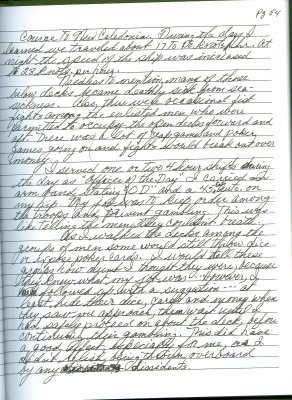 Pg 54
Course to New Caledonia. During the day, I
learned we traveled about 17 to 18 knots/hr. At
night the speed of the ship was increased
to 23 knots per hour.
Needless to mention, many of those
below decks became deathly sick from sea-
sickness. Also, there were occasional fist
fights among the enlisted men who were
permitted to occupy the open decks forward and
aft. There was a lot of crap game and poker
games going on and fights would break out over
money.
I served one or two 4 hour shifts during
the day as "Officer of the Day". I carried an
arm band stating "OD" and a 45 on
my hip. My job was to keep order among
the troops and prevent gambling. This was
like telling the men they couldn't breath.
As I walked the decks among the
groups of men some would still throw dice
or expose poker cards. I would tell these
gamers how dumb I thought they were because
they knew what my job was. However, I
followed with a suggestion --- at
least hide their dice, cards and money when
they saw me approach them, wait until I
had safely proceed on about the deck, before
continuing their gambling. This did have
a good effect, especially for me, as I
didn't relish being thrown overboard
by any dissidents.